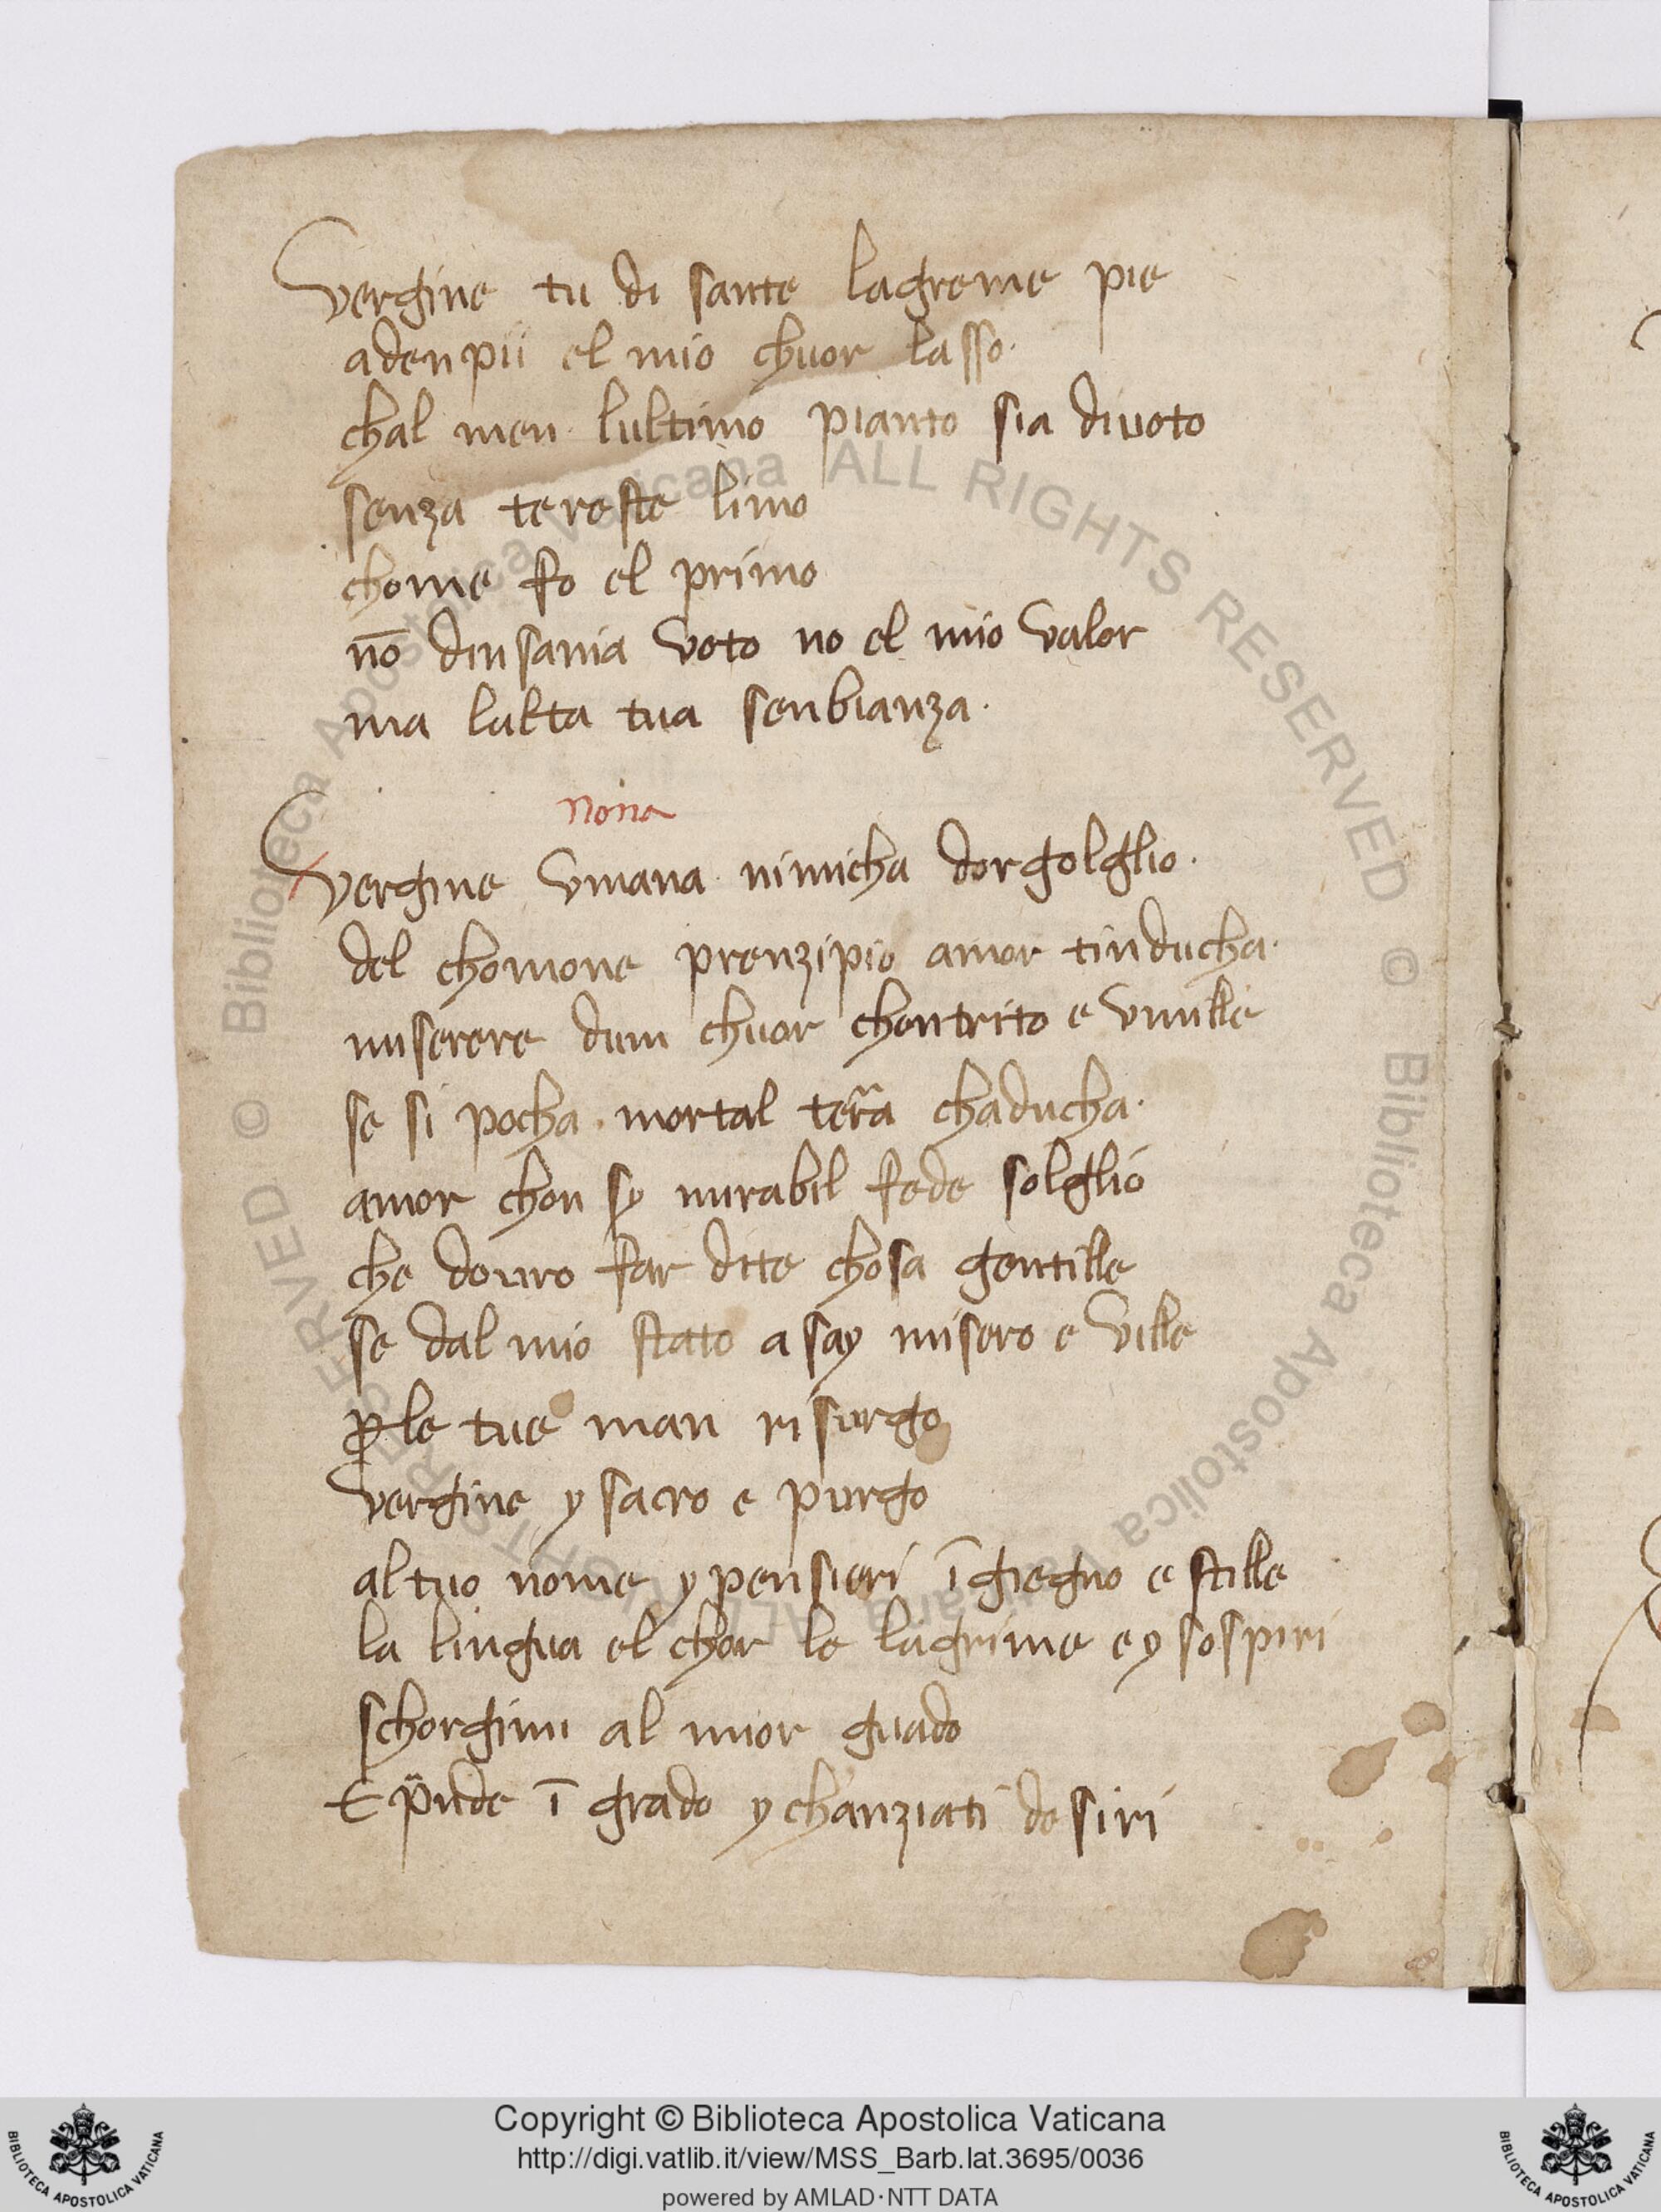 Vergine tu di sante lagreme pie
adenpii el mio chuor lasso.
chal men lultimo pianto sia divoto
senza tereste limo
chome fo el primo
nō dinsania voto no el mio valor
ma lalta tua senbianza.
nona
Vergine vmana nimicha dorgolglio.
del chomone prenzipio amor tinducha.
miserere dum chuor chontrito e vmille
se si pocha mortal tera chaducha.
amor chon sy mirabil fede solglio
che douro far dite chosa gentille
se dal mio stato asay misero e ville
ꝑ le tue man risurgo
vergine y sacro e purgo
al tuo nome y pensieri īgiegno e stille
la lingua el chor le lagrime e y sospiri
schorgimi al mior guado
E p̈nde ī grado y chanziati desiri
© Biblioteca Apostolica Vaticana ALL RIGHTS RESERVED
© Biblioteca Apostolica Vaticana ALL RIGHTS RESERVED
Copyright © Biblioteca Apostolica Vaticana
http://digi.vatlib.it/view/MSS_Barb.lat.3695/0036
powered by AMLAD·NTT DATA
BIBLIOTECA APOSTOLICA VATICANA
BIBLIOTECA APOSTOLICA VATICANA